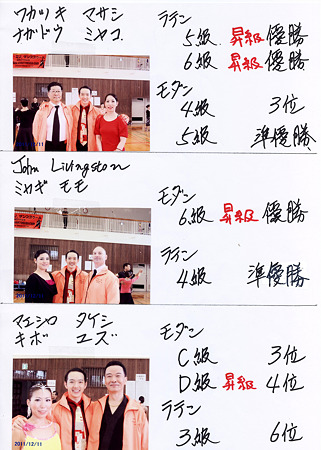 ワカツキ マサシ
ナガドウ ミヤコ
ラテン
5級 昇級 優勝
6級 昇級 優勝
モダン
4級 3位
5級 準優勝
John Livingston
ミカギ モモ
モダン
6級 昇級 優勝
ラテン
4級 準優勝
マエシロ タケシ
キボ ユズ
モダン
C級 3位
D級 昇級 4位
ラテン
3級 6位
2011/12/11